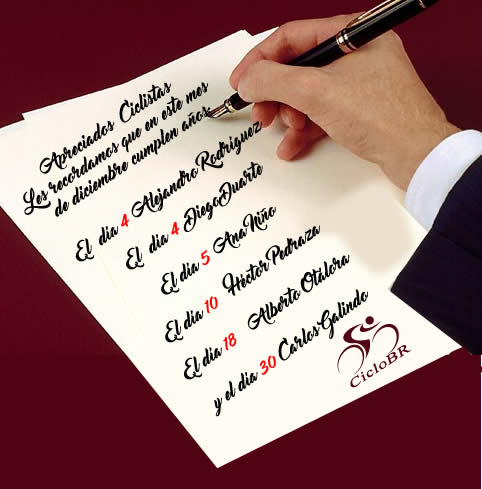 Apreciados Ciclistas
Les recordamos que en este mes
de diciembre cumplen años:
El dia 4 Alejandro Rodriguez
El dia 4 Diego Duarte
El dia 5 Ana Niño
El dia 10 Héctor Pedraza
El dia 18 Alberto Otálora
y el dia 30 Carlos Galindo
CicloBR